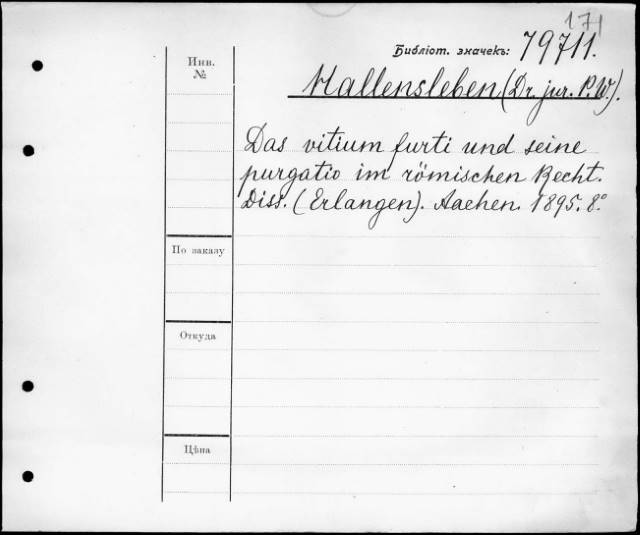 171
Библіот. значекъ: 79711.
Инв.
№
Hallensleben (Dr. jur. P.W.).
Das vitium furti und seine
purgatio im römischen Recht.
Diss. (Erlangen). Aachen. 1895. 8°
По заказу
Откуда
Цѣна